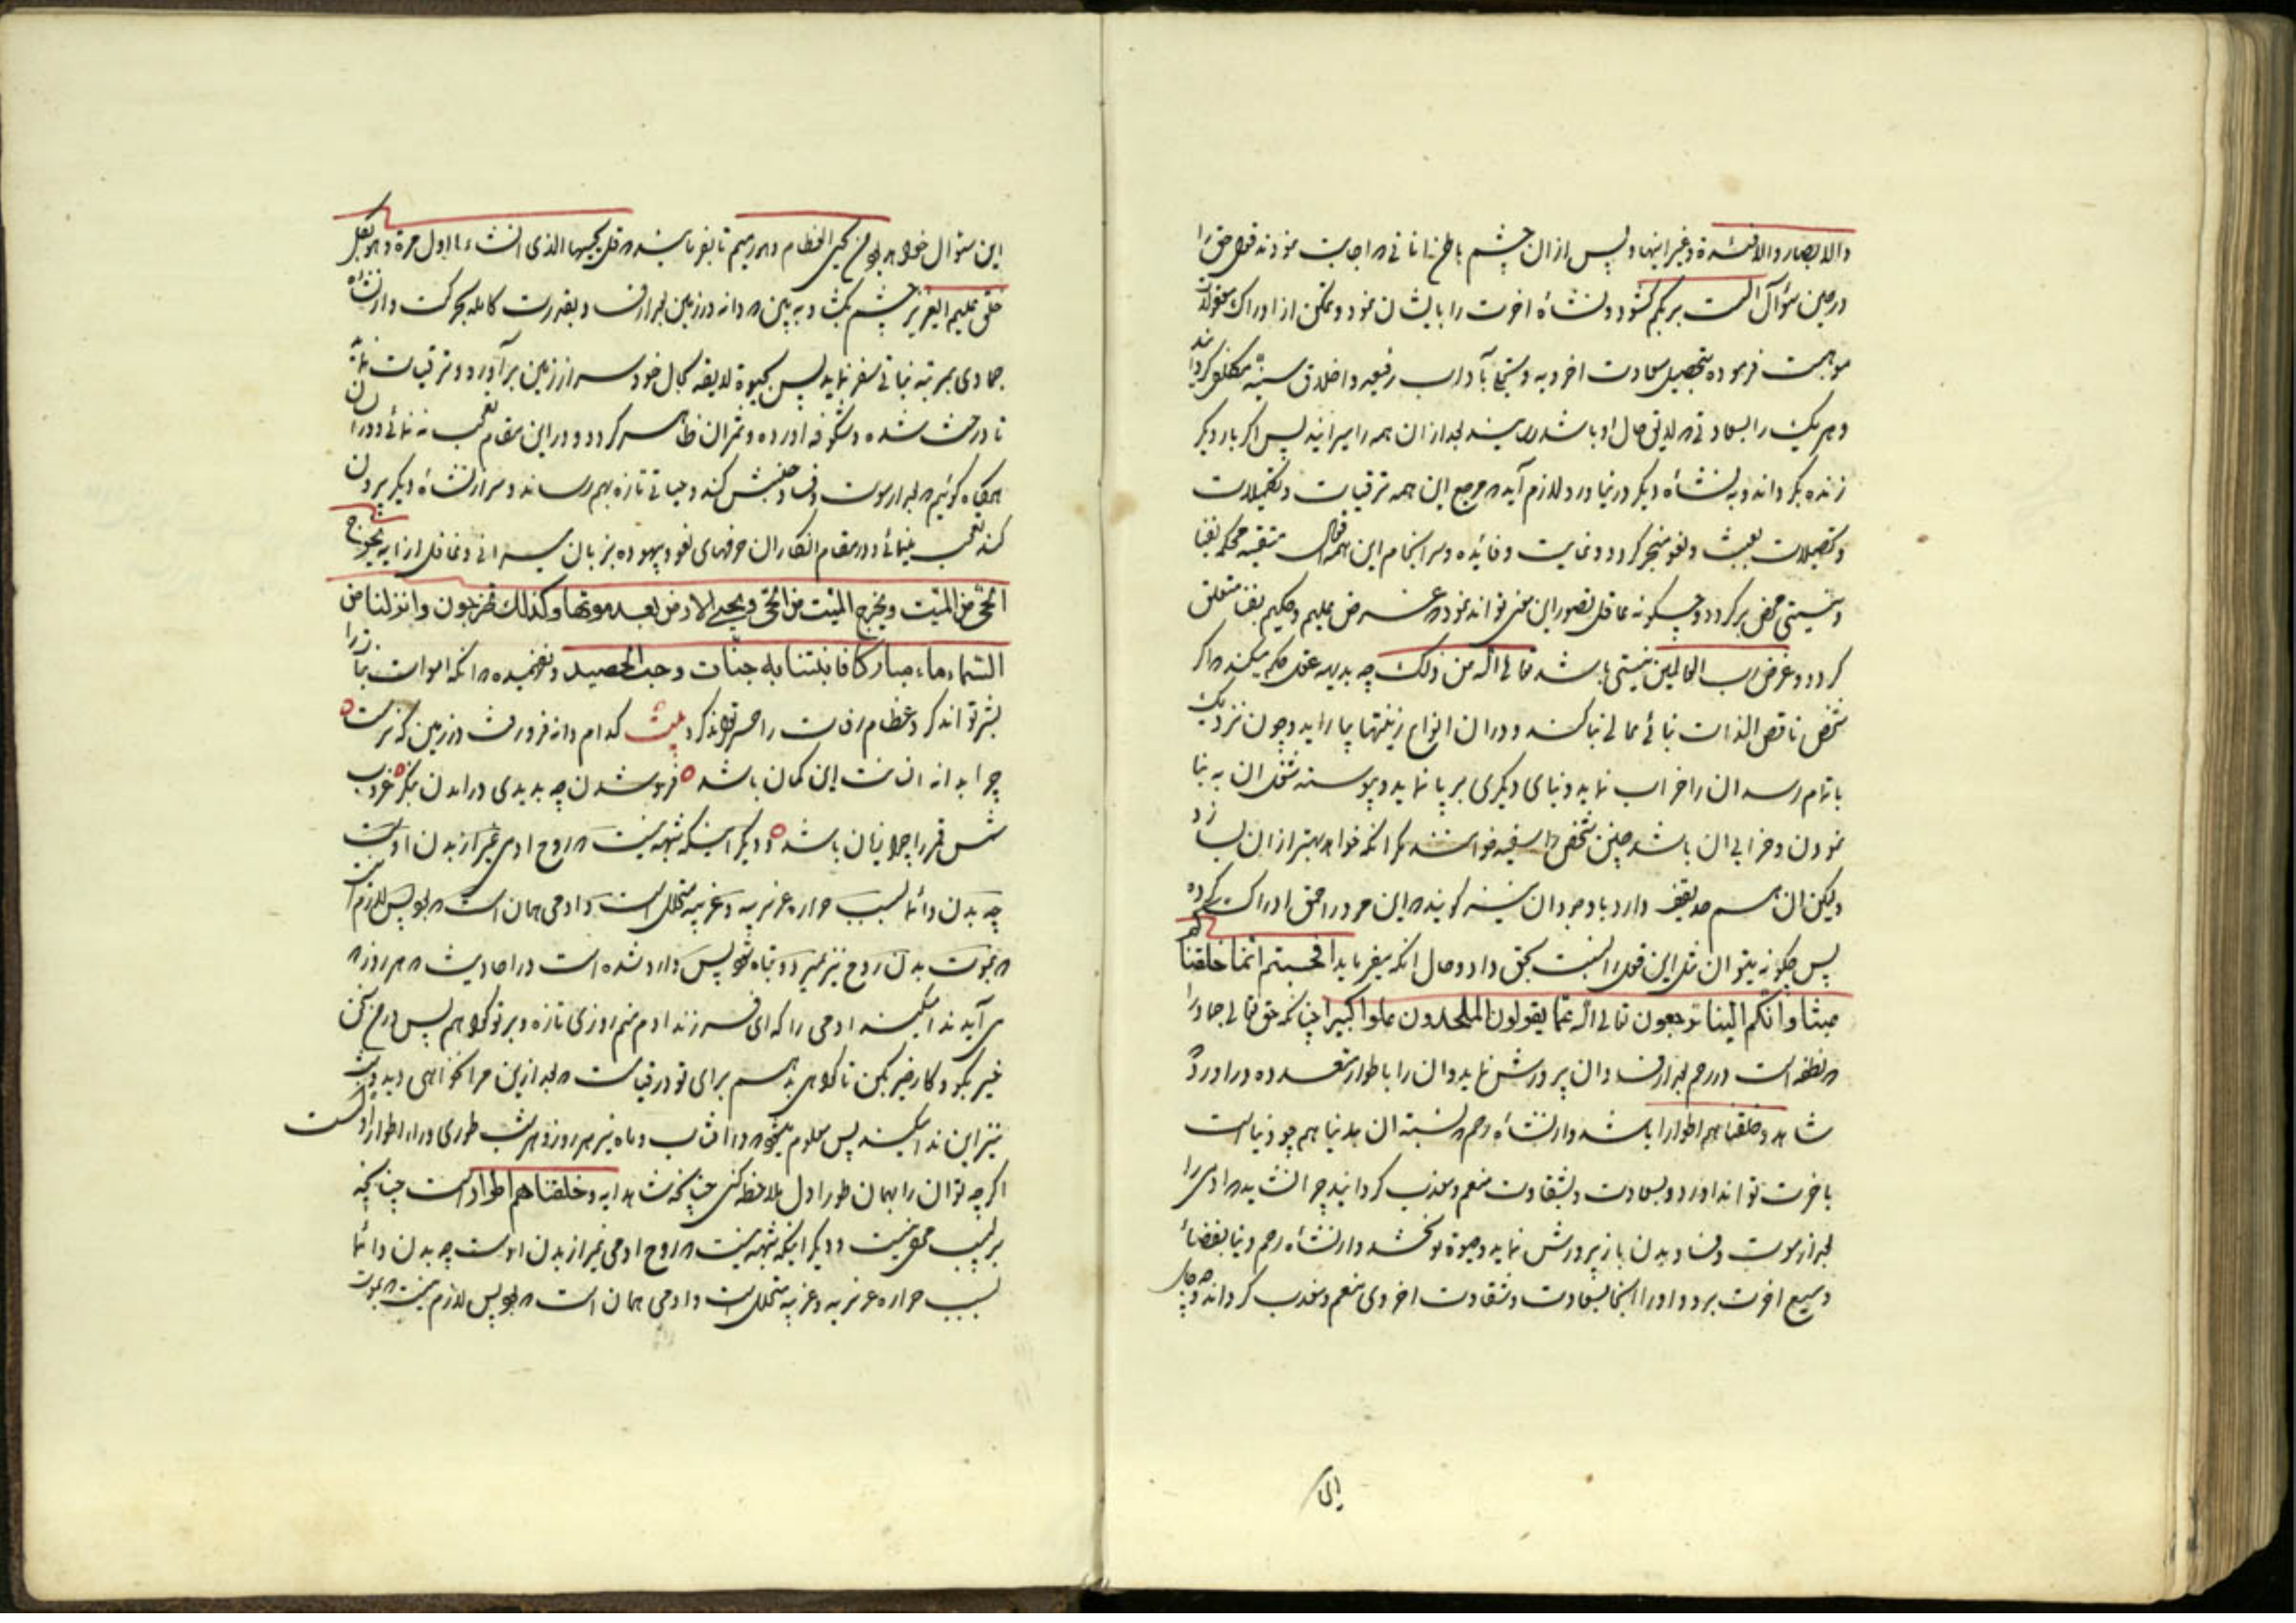 والابصار والافئدة وغیر اینها وپس از ان چشم باطن انانی که اجابت نمودند قول حق را
در حین سؤال الست بربکم کشود ونشاه اخرت را بایشان نمود وممکن از ادراک معقولات
موهبت فرموده بتحصیل سعادت اخرویه و آداب رفیعه واخلاق سنیه مکلف کرداند
وهر یک را بسعادتی که لایق حال او باشد رسانید بعد از ان همه را میرانید پس اکر بار دیکر
زنده نکرداند وبه نشاه دیکر در نیاورد لازم آید که مرجع این همه ترقیات وتکمیلات
وتحصیلات بعبث ولغو منجر کردد وغایت وفائده وسرانجام این همه افعال متقنه محکمه بفنا
ونیستی محض برکردد وچکونه عاقل تصور این معنی تواند نمود که غرض علیم وحکیم بفنا متعلق
کردد وغرض رب العالمین نیستی باشد تعالی الله من ذلک چه بدیهه عقل حکم میکند که اکر
شخص ناقص الذات بنائی عالی بنا کند ودر ان انواع زینتها بیاراید وچون نزدیک
باتمام رسد ان را خراب نماید وبنای دیکری بر پا نماید وپیوسته شغل ان به بنا
نمودن وخرابی ان باشد چنین شخص را سفیه خوانند مکر انکه خواهد بهتر از ان بسازد
ولیکن ان هم حد یقف دارد باوجود ان نیز کویند که این مرد احمق ادراک کرده
پس چکونه میتوان مثل این فعل را نسبت بحق داد وحال انکه میفرماید افحسبتم انما خلقناکم
عبثا وانکم الینا ترجعون تعالی الله عما یقولون الملحدون علوا کبیرا چنانکه حق تعالی جماد را
که نطفه است در رحم بعد از فساد ان پرورش نماید وان را باطوار متعدده در اورد که
شاهد وخلقناهم اطوارا باشد واز نشاه رحم که نسبت ان بدنیا همچو دنیا است
باخرت تواند اورد وبسعادت وبشقاوت منعم ومعذب کرداند چرا نشاید که ادمی را
بعد از موت وفساد بدن باز پرورش نماید وحیوة نو بخشد واز نشاه رحم دنیا بفضای
وسیع اخرت برد واو را اینجا بسعادت وشقاوت اخروی منعم ومعذب کرداند وچه جای
این سؤال خواهد بود من یحیی العظام وهی رمیم تا بفرمایند که قل یحییها الذی انشاءها اول مرة وهو بکل
خلق علیم العزیز چشم بکشا وبه بین که دانه در زمین بعد از فساد بقدرت کامله بحرکت در اید واز نشاه
جمادی بمرتبه نباتی سفر نماید پس بحیوة لایقه بحال خود سر از زمین بر آورد وترقیات نماید
تا درخت شده وشکوفه اورده وثمر ان ظاهر کردد ودر این مقام تعجب نه نمائی ودر ان
هنکام کوئیم که بعد از موت وفساد جنبش کند وحیاتی تازه بهم رساند وسر از نشاه دیکر برون
کند تعجب مینمائی ودر مقام انکار ان حرفهای لغو وبیهوده بزبان میرانی وغافل از ایه یخرج
الحی من المیت ویخرج المیت من الحی ویحیی الارض بعد موتها وکذلک تخرجون وانزلنا من
السماء ماء مبارکا فانبتنا به جنات وحب الحصید ونفهمیده که انکه اموات نبات را
بشر تواند کرد وعظام رفات را حشر تواند کرد بیت کدام دانه فرو رفت در زمین که نرست
چرا بدانه انسانت این کمان باشد فرو شدن چه بدیدی در امدن بنکر غروب
شمس وقمر را چرا زیان باشد ودیکر اینکه شبهه نیست که روح ادمی غیر از بدن اوست
چه بدن دائما بسبب حراره غریزیه وغریبه متحلل است وادمی همان است که بود پس لازم نیست
که بموت بدن روح نیز بمیرد وتباه شود پس وارد شده است در احادیث که هر روز که
می آید ندا میکند ادمی را که ای فرزند ادم منم روزی تازه وبر تو کواهم پس در من سخن
خیر بکو وکار خیر بکن تا کواهی بدهم برای تو در قیامت که بعد از این مرا نخواهی دید وشب
نیز این ندا میکند پس معلوم میشود که در افتاب وماه نیز هر روز وهر شب طوری دارد از اطوار او نیست
اکر چه تو ان را بهمان طور اول ملاحظه کنی چنانکه شاهد ایه وخلقناهم اطوارا است چنانچه
بر لبیب مخفی نیست ودیکر اینکه شبهه نیست که روح ادمی غیر از بدن اوست چه بدن دائما
بسبب حراره غریزیه وغریبه متحلل است وادمی همان است که بود پس لازم نیست که بموت